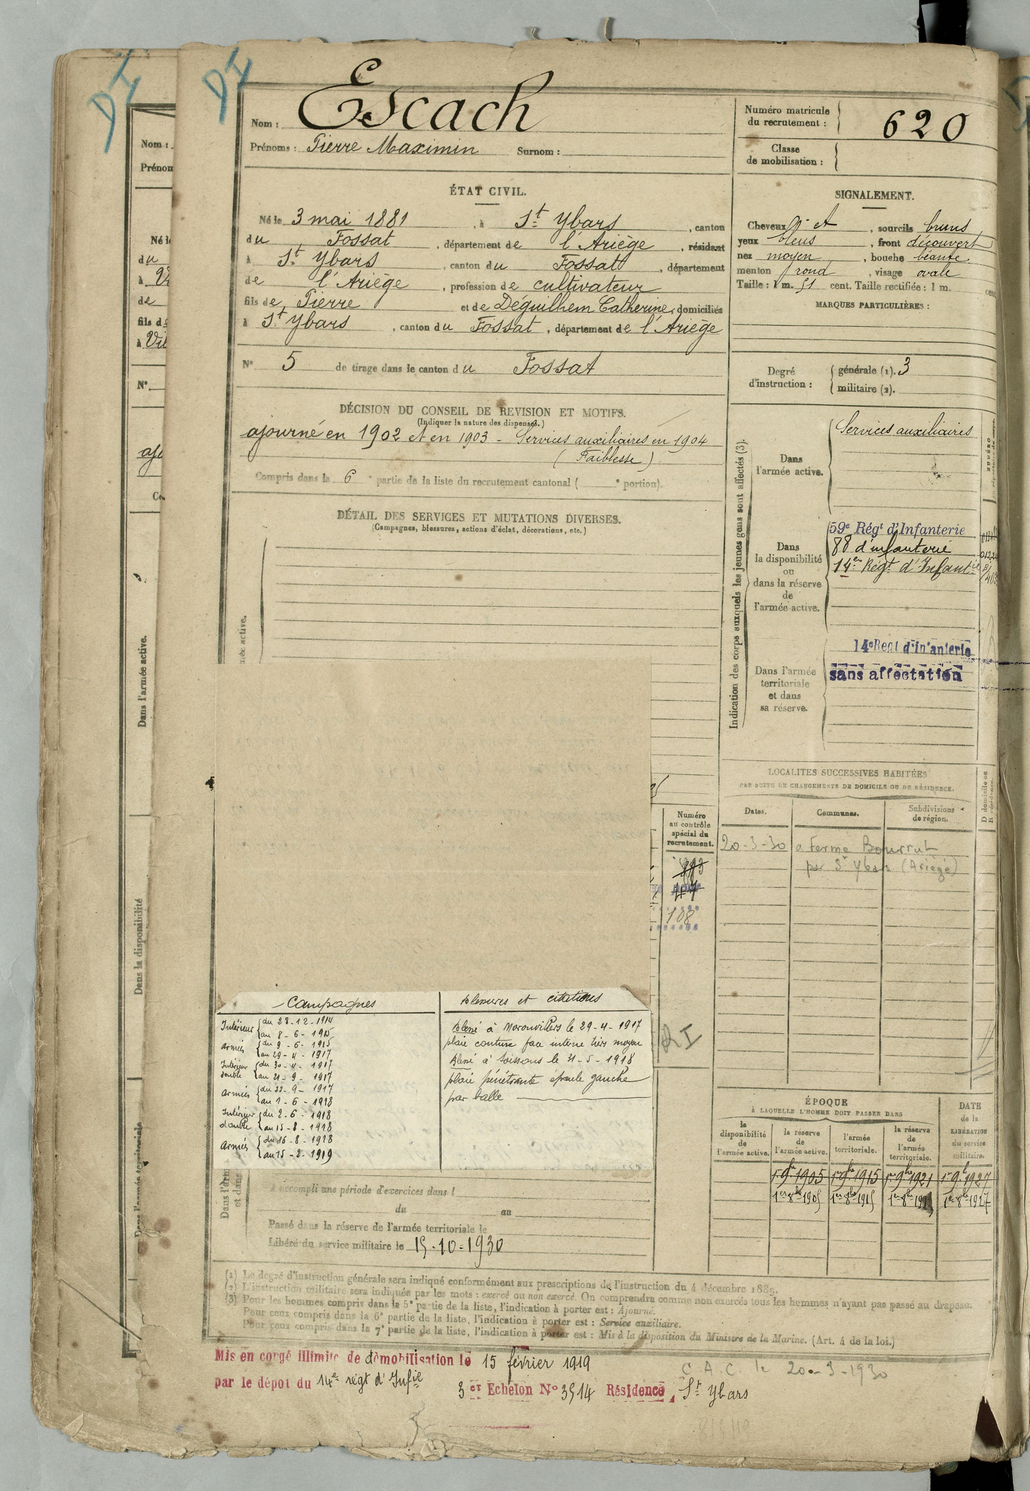 DI
DI
Nom : Escach
Prénoms : Pierre Maximin Surnom :
Numéro matricule
du recrutement : 620
Classe
de mobilisation :
ÉTAT CIVIL.
Né le 3 mai 1881, à St Ybars, canton
du Fossat, département de l'Ariège, résidant
à St Ybars, canton du Fossat, département
de l'Ariège, profession de cultivateur
fils de Pierre et de Déguilhem Catherine, domiciliés
à St Ybars, canton du Fossat, département de l'Ariège
N° 5 de tirage dans le canton du Fossat
SIGNALEMENT.
Cheveux ch et, sourcils bruns
yeux bleus, front découvert
nez moyen, bouche
menton rond, visage ovale
Taille : 1 m. 51 cent. Taille rectifiée : 1 m. cent.
MARQUES PARTICULIÈRES :
Degré
d'instruction :
générale (1). 3
militaire (2).
DÉCISION DU CONSEIL DE REVISION ET MOTIFS.
(Indiquer la nature des dispenses.)
ajourné en 1902 et en 1903 - Services auxiliaires en 1904
(Faiblesse)
Compris dans la 6e partie de la liste du recrutement cantonal ( e portion).
DÉTAIL DES SERVICES ET MUTATIONS DIVERSES.
(Campagnes, blessures, actions d'éclat, décorations, etc.)
Indication des corps auxquels les jeunes gens sont affectés (3).
Dans
l'armée active.
Services auxiliaires
Dans
la disponibilité
ou
dans la réserve
de
l'armée active.
59e Régt d'Infanterie
88 d'infanterie
14e Régt d'Infantie
Dans l'armée
territoriale
et dans
sa réserve.
14e Regt d'Infanterie
sans affectation
LOCALITÉS SUCCESSIVES HABITÉES
PAR SUITE DE CHANGEMENTS DE DOMICILE OU DE RÉSIDENCE.
Dates. Communes. Subdivisions
de région.
20-3-30 a Ferme Bourrut
par St Ybars (Ariège)
Numéro
au contrôle
spécial du
recrutement.
108
RI
Campagnes
Intérieur du 28-12-1914
au 8-6-1915
Armées du 9-6-1915
au 29-4-1917
Intérieur du 30-4-1917
double au 21-9-1917
Armées du 22-9-1917
au 1-6-1918
Intérieur du 2-6-1918
double au 15-8-1918
Armées du 16-8-1918
au 15-2-1919
blessures et citations
blessé à Moronvillers le 29-4-1917
plaie contuse face interne tiers moyen
blessé à Soissons le 31-5-1918
plaie pénétrante épaule gauche
par balle
ÉPOQUE
À LAQUELLE L'HOMME DOIT PASSER DANS
la
disponibilité
de
l'armée active.
la réserve
de
l'armée active.
l'armée
territoriale.
la réserve
de
l'armée
territoriale.
DATE
de la
LIBÉRATION
du service
militaire.
1er 9bre 1905 1er 9bre 1915 1er 9bre 1921 1er 9bre 1927
1er 8bre 1905 1er 8bre 1915 1er 8bre 1er 8bre 1927
A accompli une période d'exercices dans l
du au
Passé dans la réserve de l'armée territoriale le
Libéré du service militaire le 15-10-1930
(1) Le degré d'instruction générale sera indiqué conformément aux prescriptions de l'instruction du 4 décembre 1889.
(2) L'instruction militaire sera indiquée par les mots : exercé ou non exercé. On comprendra comme non exercés tous les hommes n'ayant pas passé au drapeau.
(3) Pour les hommes compris dans la 5e partie de la liste, l'indication à porter est : Ajourné.
Pour ceux compris dans la 6e partie de la liste, l'indication à porter est : Service auxiliaire.
Pour ceux compris dans la 7e partie de la liste, l'indication à porter est : Mis à la disposition du Ministre de la Marine. (Art. 4 de la loi.)
Mis en congé illimité de démobilisation le 15 février 1919
par le dépot du 14e régt d'Infie
3e Echelon N° 3514 Résidence St Ybars
C.A.C. le 20-3-1930